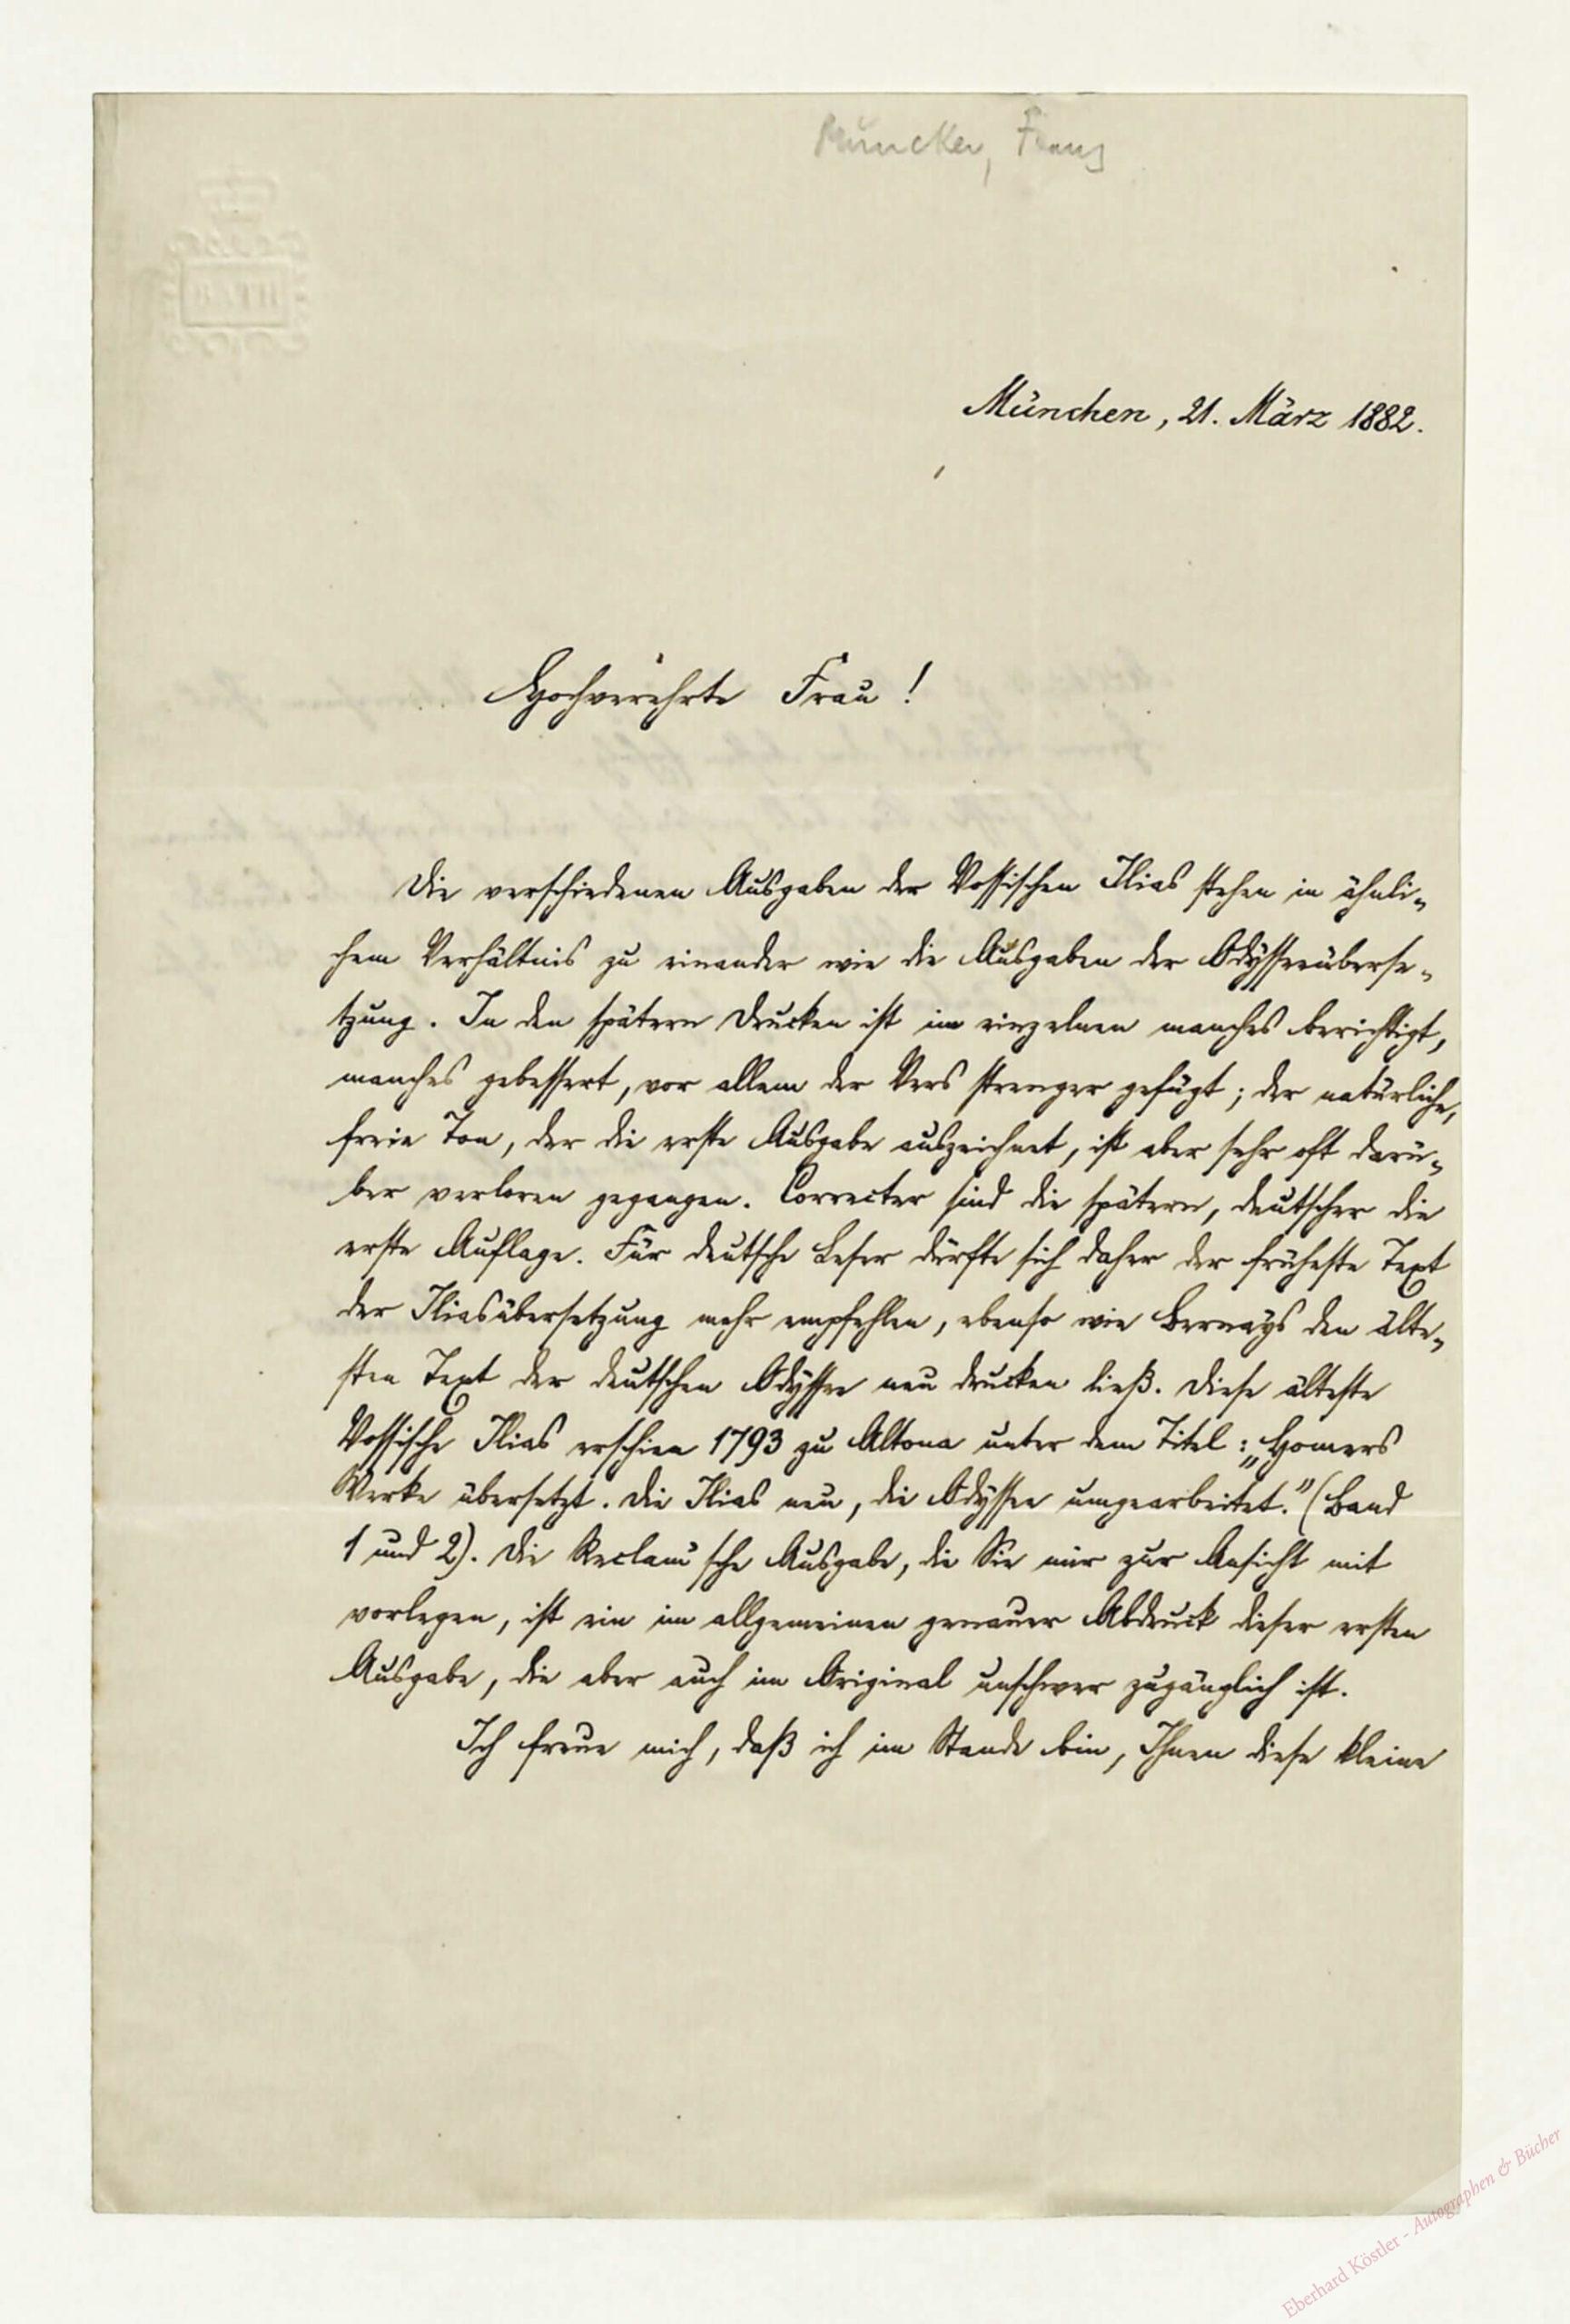 Muncker, Franz
München, 21. März 1882.
Hochverehrte Frau!
Die verschiedenen Ausgaben der Vossischen Ilias stehen in ähnli-
chem Verhältnis zu einander wie die Ausgaben der Odysseeüberse-
tzung. In den spätern Drucken ist im einzelnen manches berichtigt,
manches gebessert, vor allem der Vers strenger gefügt; der natürliche,
freie Ton, der die erste Ausgabe auszeichnet, ist aber sehr oft darü-
ber verloren gegangen. Correcter sind die spätern, deutscher die
erste Auflage. Für deutsche Leser dürfte sich daher der früheste Text
der Iliasübersetzung mehr empfehlen, ebenso wie Bernays den älte-
sten Text der deutschen Odyssee neu drucken ließ. Diese älteste
Vossische Ilias erschien 1793 zu Altona unter dem Titel: „Homers
Werke übersetzt. Die Ilias neu, die Odyssee umgearbeitet.“ (Band
1 und 2). Die Reclam'sche Ausgabe, die Sie mir zur Ansicht mit
vorlegen, ist ein im allgemeinen genauer Abdruck dieser ersten
Ausgabe, die aber auch im Original unschwer zugänglich ist.
Ich freue mich, daß ich im Stande bin, Ihnen diese kleine
Eberhard Köstler - Autographen & Bücher